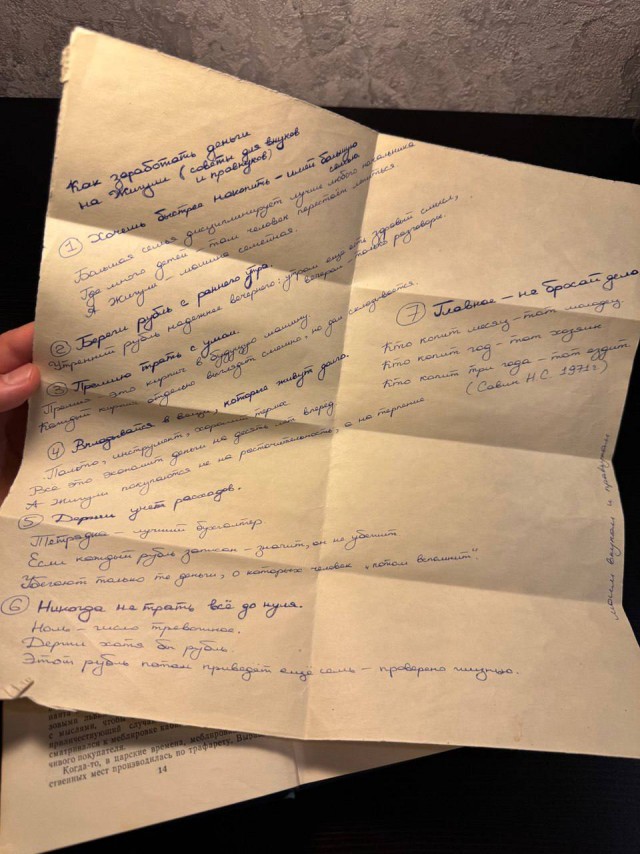 Как заработать деньги
на Жигули (советы для внуков
и правнуков)
1 Хочешь быстрее накопить – имей большую
семью
Большая семья дисциплинирует лучше любого начальника
Где много детей – там человек перестаёт лениться
А Жигули – машина семейная.
2 Береги рубль с раннего утра.
Утренний рубль надежнее вечернего: утром ещё есть здравый смысл,
вечером – только разговоры.
3 Премию трать с умом.
Премия это кирпич в будущую машину.
Каждый кирпич отдельно выглядит смешно, но дом складывается.
4 Вкладывайся в вещи, которые живут долго.
Пальто, инструмент, хороший термос
Всё это экономит деньги на десять лет вперёд
А Жигули покупаются не на расточительность, а на терпение
5 Держи учёт расходов.
Тетрадка – лучший бухгалтер
Если каждый рубль записан – значит, он не убежит
Убегают только те деньги, о которых человек "потом вспомнит".
6 Никогда не трать всё до нуля.
Ноль – число тревожное.
Держи хотя бы рубль.
Этот рубль потом приведёт ещё семь – проверено жизнью.
7 Главное – не бросай дело
Кто копит месяц – тот молодец.
Кто копит год – тот хозяин
Кто копит три года – тот ездит.
(Савин Н.С 1971г)
моим внукам и правнукам
с мыслями, чтобы
сматривался к меблировке
чивого покупателя.
Когда-то, в царские времена, меблировка
ственных мест производилась по трафарету.
14